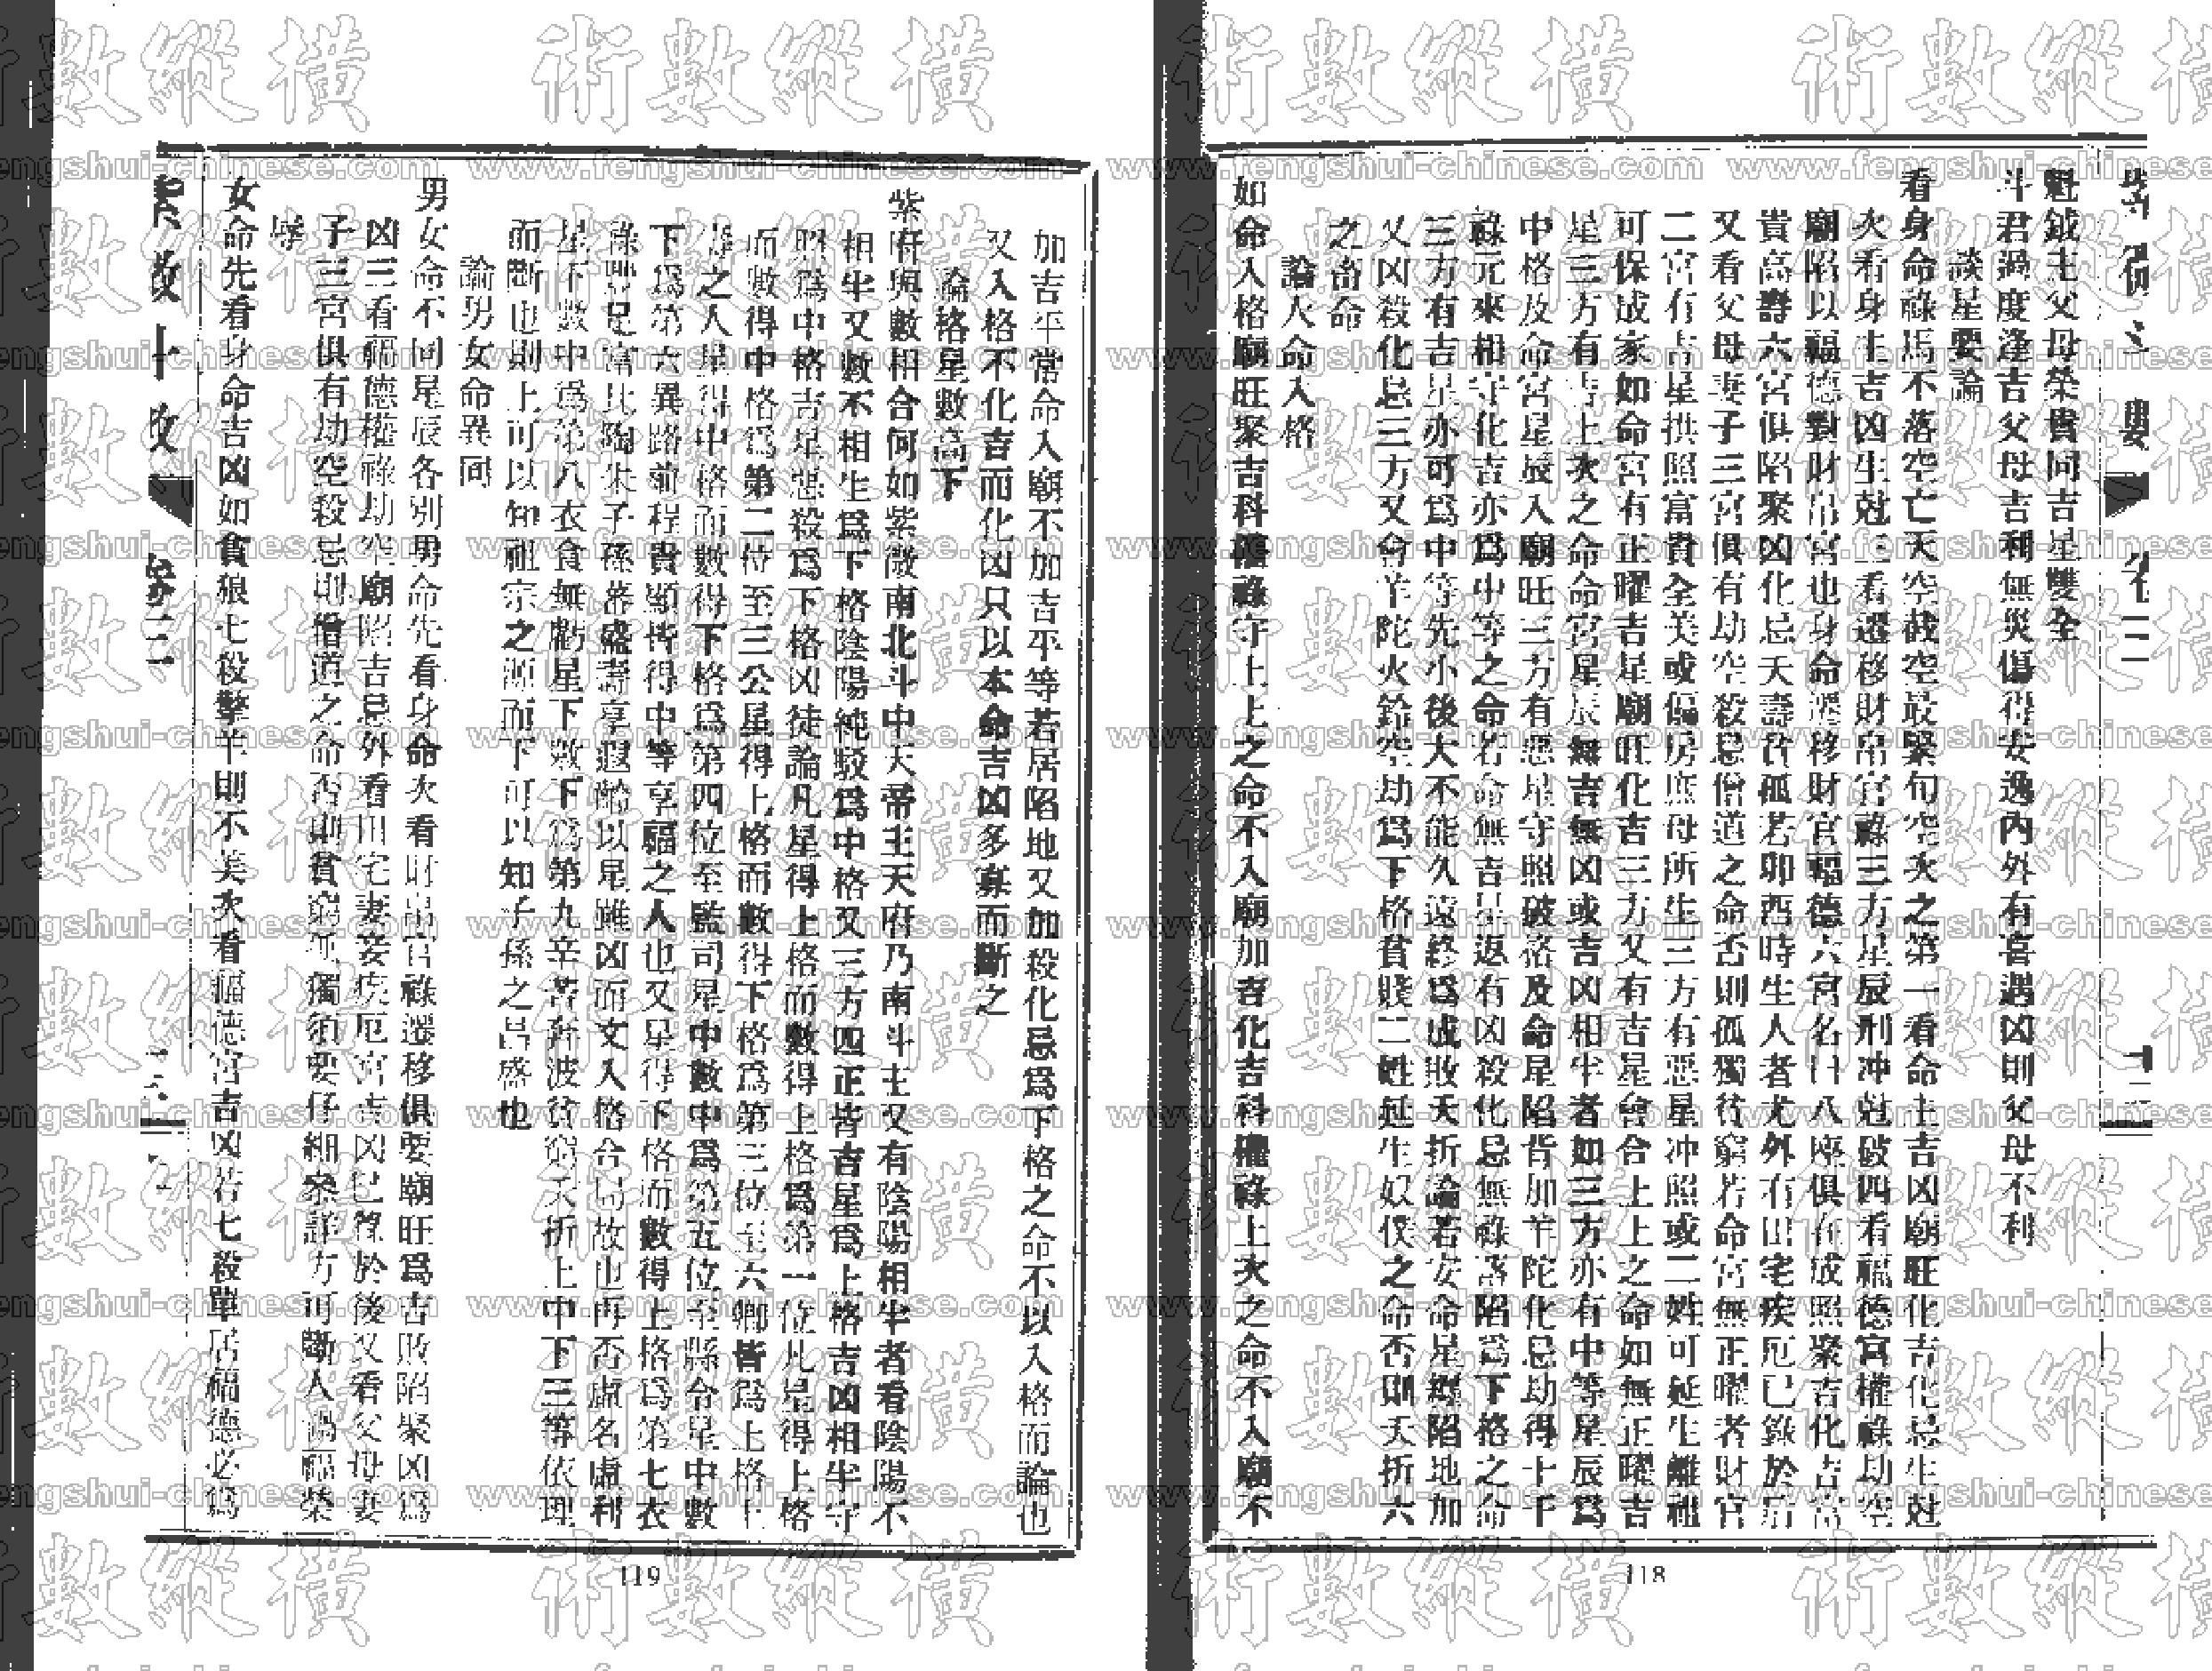 魁鉞主父母榮貴同吉星雙全
斗君過度逢吉父母吉利無災傷得安逸內外有喜遇凶則父母不利
談星要論
看身命祿馬不落空亡天空截空最緊旬空次之第一看命主吉凶廟旺化吉化忌生尅
次看身主吉凶生尅三看遷移財帛官祿三方星辰刑冲尅破四看福德宮權祿劫空
廟陷以福德對財帛宮也身命遷移財官福德六宮名曰八座俱在成照聚吉化吉富
貴高壽六宮俱陷聚凶化忌夭壽貧孤若卯酉時生人者尤外有田宅疾厄已錄於后
又看父母妻子三宮俱有劫空殺忌僧道之命否則孤獨貧窮若命宮無正曜者財官
二宮有吉星拱照富貴全美或偏房庶母所生三方有惡星冲照或二姓可延生離祖
可保成家如命宮有正曜吉星廟旺化吉三方又有吉星會合上上之命如無正曜吉
星三方有吉上次之命命宮星辰無吉無凶或吉凶相半者如三方亦有中等星辰爲
中格及命宮星辰入廟旺三方有惡星守照破格及命星陷背加羊陀化忌劫得十干
祿元來相守化吉亦爲中等之命若命無吉星返有凶殺化忌無祿落陷爲下格之命
三方有吉星亦可爲中等先小後大不能久遠終爲成敗夭折論若女命星纏陷地加
又凶殺化忌三方又會羊陀火鈴空劫爲下格貧賤二姓延生奴僕之命否則夭折六
之畜命
論人命入格
如命入格廟旺聚吉科權祿守上上之命不入廟加吉化吉科權祿上次之命不入廟不
加吉平常命入廟不加吉平等若居陷地又加殺化忌爲下格之命不以入格而論也
又入格不化吉而化凶只以本命吉凶多寡而斷之
論格星數高下
紫府與數相合何如紫微南北斗中天帝主天府乃南斗主又有陰陽相半者看陰陽不
相半又數不相生爲下格陰陽純駁爲中格又三方四正皆吉星爲上格吉凶相半守
照爲中格吉星惡殺爲下格凶徒論凡星得上格而數得上格爲第一位凡星得上格
而數得中格爲第二位至三公星得上格而數得下格爲第三位至六卿皆爲上格上
壽之人星得中格而數得下格爲第四位至監司星中數中爲第五位至縣令星中數
下爲第六異路前程貴顯皆得中等享福之人也又星得下格而數得上格爲第七衣
祿豐足富比陶朱子孫蕃盛壽享遐齡以星雖凶而文入格合局故也再否虛名虛利
星下數中爲第八衣食無虧星下數下爲第九辛苦奔波貧窮夭折上中下三等依理
而斷也則上可以知祖宗之源而下可以知子孫之昌盛也
論男女命異同
男女命不同星辰各別男命先看身命次看財帛官祿遷移俱要廟旺爲吉敗陷聚凶爲
凶三看福德權祿劫空廟陷吉忌外看田宅妻妾疾厄宮吉凶已算於後又看父母妻
子三宮俱有劫空殺忌則僧道之命否則貧窮孤獨須要仔細參詳方可斷人禍福榮
辱
女命先看身命吉凶如貪狼七殺擎羊則不美次看福德宮吉凶若七殺單居福德必爲
119
118